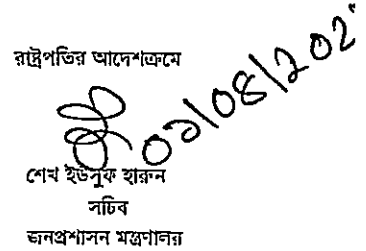 রাষ্ট্রপতির আদেশক্রমে
০১/০৪/২০২
শেখ ইউসুফ হারুন
সচিব
জনপ্রশাসন মন্ত্রণালয়